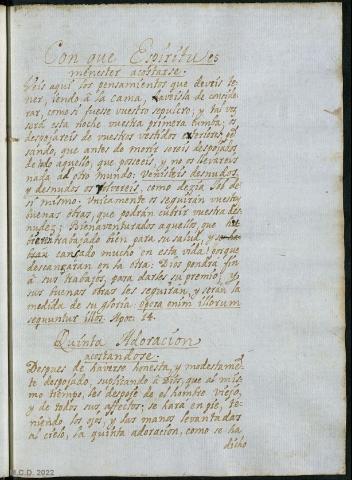 Con que Espiritu es
menester acostarse.
Veis aqui los pensamientos que deveis te-
ner, iendo à la cama, haveisla de conside-
rar, como si fuesse vuestro sepulcro, y tal vez
será esta noche vuestra primera tumba; os
despojareis de vuestros vestidos exteriores pen-
sando, que antes de morir sereis despojados
de todo aquello, que posseeis, y no os llevareis
nada al otro mundo: Venisteis desnudos,
y desnudos os bolvereis, como dezia Job de
si mismo. Unicamente os seguirán vuestras
buenas obras, que podrán cubrir vuestra des-
nudez; Bienaventurados aquellos, que
trabajado bien para su salud, y
cansado mucho en esta vida! porque
descansaran en la otra: Dios pondrá fin
à sus trabajos, para darles su premio, y
sus buenas obras les seguirán, y serán la
medida de su gloria: opera enim illorum
sequuntur illos. Apoc. 14.
Quinta Adoracion
acostandose.
Despues de haverse honesta, y modestamẽ-
te despojado, suplicando à Dios, que al mis-
mo tiempo, les despoje de el hombre viejo,
y de todos sus affectos, se hará en pie, te-
niendo los ojos, y las manos levantadas
al cielo, la quinta adoracion, como se ha
dicho
M.C.D. 2022